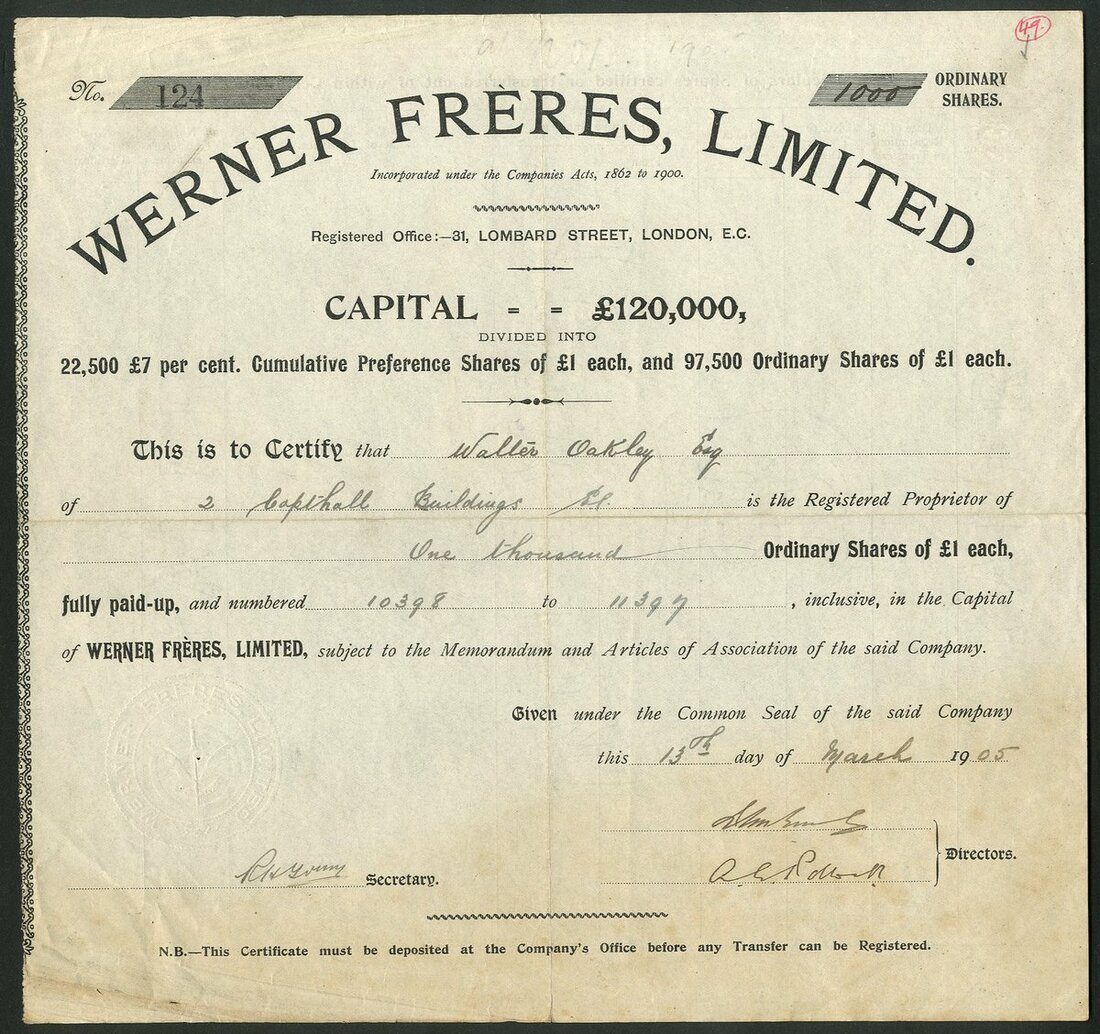 49
No. 124
1000 ORDINARY SHARES.
WERNER FRÈRES, LIMITED.
Incorporated under the Companies Acts, 1862 to 1900.
Registered Office:—31, LOMBARD STREET, LONDON, E.C.
CAPITAL = = £120,000,
DIVIDED INTO
22,500 £7 per cent. Cumulative Preference Shares of £1 each, and 97,500 Ordinary Shares of £1 each.
This is to Certify that Walter Oakley Esq
of 2 Copthall Buildings is the Registered Proprietor of
One thousand Ordinary Shares of £1 each,
fully paid-up, and numbered 10398 to 11397, inclusive, in the Capital
of WERNER FRÈRES, LIMITED, subject to the Memorandum and Articles of Association of the said Company.
Given under the Common Seal of the said Company
this 13th day of March 1905
Directors.
Secretary.
N.B.—This Certificate must be deposited at the Company's Office before any Transfer can be Registered.